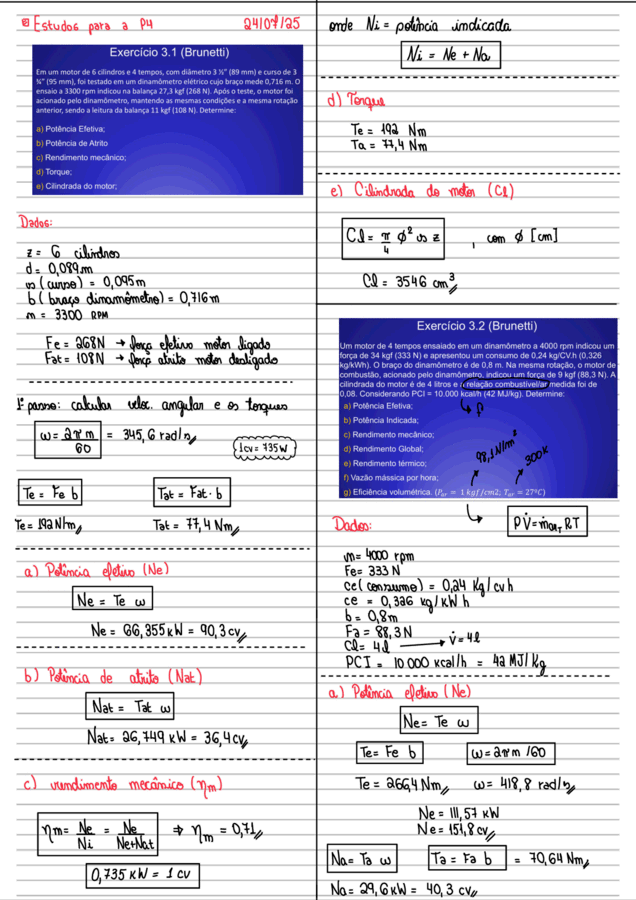 Estudos para a P4 24/07/25
Exercício 3.1 (Brunetti)
Em um motor de 6 cilindros e 4 tempos, com diâmetro 3 ½" (89 mm) e curso de 3
¾" (95 mm), foi testado em um dinamômetro elétrico cujo braço mede 0,716 m. O
ensaio a 3300 rpm indicou na balança 27,3 kgf (268 N). Após o teste, o motor foi
acionado pelo dinamômetro, mantendo as mesmas condições e a mesma rotação
anterior, sendo a leitura da balança 11 kgf (108 N). Determine:
a) Potência Efetiva;
b) Potência de Atrito
c) Rendimento mecânico;
d) Torque;
e) Cilindrada do motor;
Dados:
z = 6 cilindros
d = 0,089m
s (curso) = 0,095m
b (braço dinamômetro) = 0,716m
n = 3300 RPM
Fe = 268N → força efetivo motor ligado
Fat = 108N → força atrito motor desligado
1º passo: calcular veloc. angular e os torques
ω = 2πn / 60 = 345,6 rad/s
1cv = 735W
Te = Fe b
Tat = Fat · b
Te = 192 N/m
Tat = 77,4 Nm
a) Potência efetiva (Ne)
Ne = Te ω
Ne = 66,355 kW = 90,3 cv
b) Potência de atrito (Nat)
Nat = Tat ω
Nat = 26,749 kW = 36,4 cv
c) rendimento mecânico (ηm)
ηm = Ne / Ni = Ne / Ne+Nat ⇒ ηm = 0,71
0,735 kW = 1 cv
onde Ni = potência indicada
Ni = Ne + Na
d) Torque
Te = 192 Nm
Ta = 77,4 Nm
e) Cilindrada do motor (Cl)
Cl = π/4 φ² s z , com φ [cm]
Cl = 3546 cm³
Exercício 3.2 (Brunetti)
Um motor de 4 tempos ensaiado em um dinamômetro a 4000 rpm indicou um
força de 34 kgf (333 N) e apresentou um consumo de 0,24 kg/CV.h (0,326
kg/kWh). O braço do dinamômetro é de 0,8 m. Na mesma rotação, o motor de
combustão, acionado pelo dinamômetro, indicou um força de 9 kgf (88,3 N). A
cilindrada do motor é de 4 litros e a relação combustível/ar medida foi de
0,08. Considerando PCI = 10.000 kcal/h (42 MJ/kg). Determine:
a) Potência Efetiva;
b) Potência Indicada;
c) Rendimento mecânico;
d) Rendimento Global;
e) Rendimento térmico;
f) Vazão mássica por hora;
g) Eficiência volumétrica. (Par = 1 kgf/cm2; Tar = 27°C)
98,1 N/m²
300K
PV̇ = ṁar RT
Dados:
n = 4000 rpm
Fe = 333 N
ce (consumo) = 0,24 Kg/cv h
ce = 0,326 kg/kW h
b = 0,8m
Fa = 88,3 N
Cl = 4l → V̇ = 4l
PCI = 10 000 kcal/h = 42 MJ/Kg
a) Potência efetiva (Ne)
Ne = Te ω
Te = Fe b
ω = 2πn /60
Te = 266,4 Nm
ω = 418,8 rad/s
Ne = 111,57 kW
Ne = 151,8 cv
Na = Ta ω
Ta = Fa b = 70,64 Nm
Na = 29,6 kW = 40,3 cv